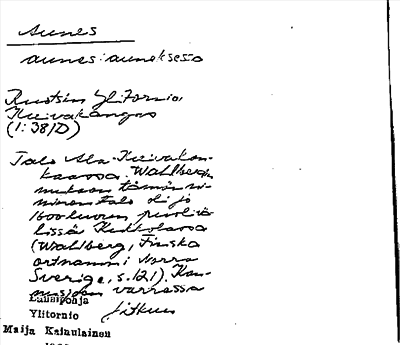 Aunes
aunes: auneksesta
Ruotsin Ylitornio,
Kuivakangas
(1:38/D)
Talo Ala-Kuivakan-
kaassa. Wahlbergin
mukaan tämän ni-
minen talo oli jo
1600-luvun puolivä-
lissä Kukkolassa
(Wahlberg, Finska
ortnamn i Norra
Sverige, s. 121). Kan-
varressa
Lansipohja
Jatkuu
Ylitornio
Maija Kainulainen